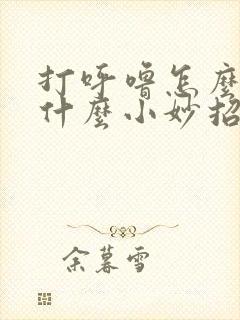 打呼嚕怎麼
什麼小妙招
余暮雪